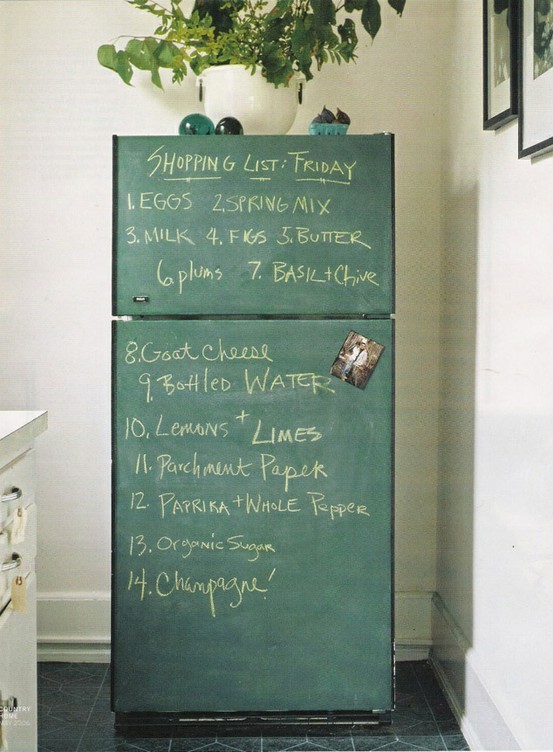 SHOPPING LIST: FRIDAY
1. EGGS 2. SPRING MIX
3. MILK 4. FIGS 5. BUTTER
6. plums 7. BASIL + Chive
8. Goat cheese
9. Bottled WATER
10. Lemons + LIMES
11. Parchment Paper
12. PAPRIKA + WHOLE Pepper
13. Organic Sugar
14. Champagne!
COUNTRY
HOME